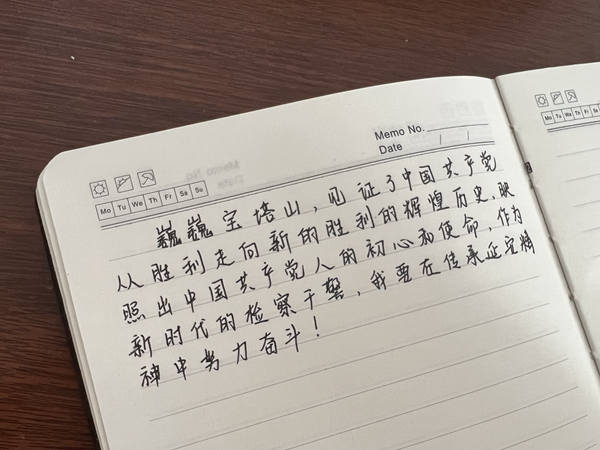 Memo No.
Date / /
Mo Tu We Th Fr Sa Su
巍巍宝塔山，见证了中国共产党
从胜利走向新的胜利的辉煌历史，映
照出中国共产党人的初心和使命，作为
新时代的检察干警，我要在传承延安精
神中努力奋斗！
Mo Tu We Th Fr Sa